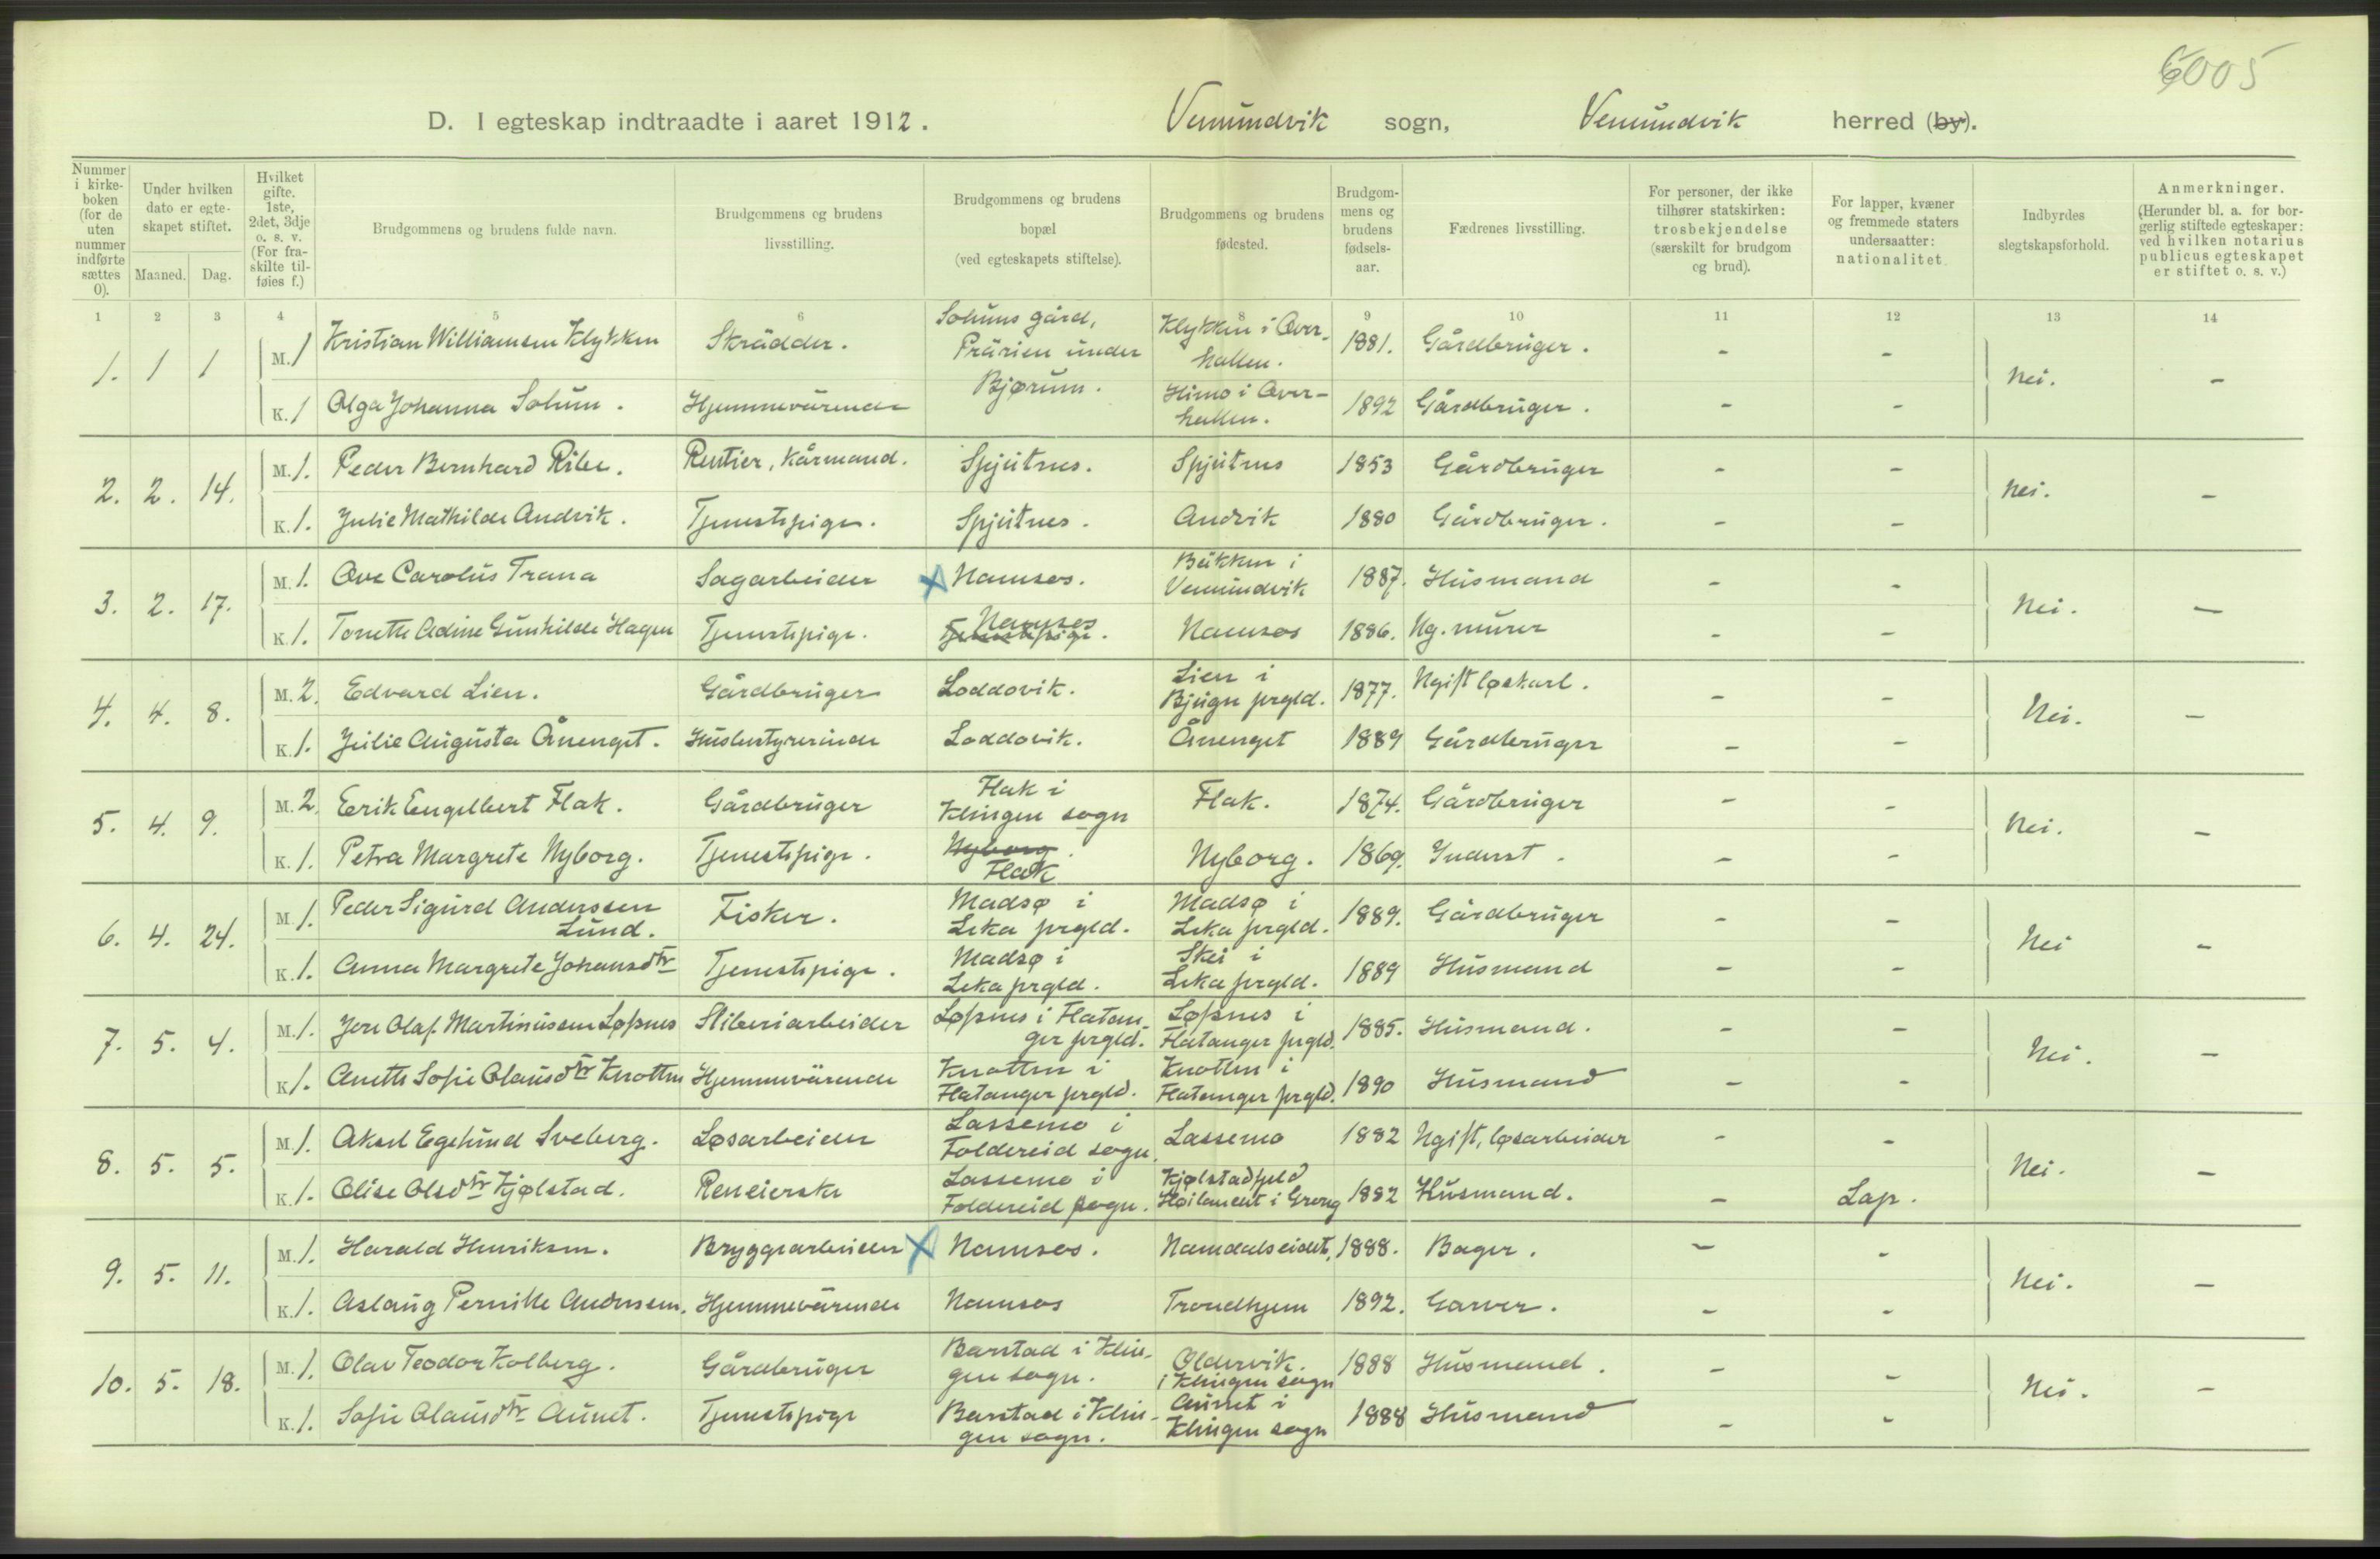 6005
D. I egteskap indtraadte i aaret 1912. Vemundvik sogn, Vemundvik herred (by).
Nummer i kirkeboken (for de uten nummer indførte sættes 0).
Under hvilken dato er egteskapet stiftet.
Maaned. Dag.
Hvilket gifte. 1ste, 2det, 3dje o. s. v. (For fraskilte tilføies f.)
Brudgommens og brudens fulde navn.
Brudgommens og brudens livsstilling.
Brudgommens og brudens bopæl (ved egteskapets stiftelse).
Brudgommens og brudens fødested.
Brudgommens og brudens fødselsaar.
Fædrenes livsstilling.
For personer, der ikke tilhører statskirken: trosbekjendelse (særskilt for brudgom og brud).
For lapper, kvæner og fremmede staters undersaatter: nationalitet.
Indbyrdes slegtskapsforhold.
Anmerkninger. (Herunder bl. a. for borgerlig stiftede egteskaper: ved hvilken notarius publicus egteskapet er stiftet o. s. v.)
1 2 3 4 5 6 8 9 10 11 12 13 14
1. 1 1 M. 1 Kristian Williamsen Klykken Skrädder. Solums gård, Prärien under Bjørum. Klykken i Overhallen. 1881. Gårdbruger. - - Nei. -
K. 1 Olga Johanna Solum. Hjemmevärende Himo i Overhallen. 1892 Gårdbruger. - -
2. 2. 14. M. 1. Peder Bernhard Ribe. Rentier, Kårmand. Spjutnes. Spjutnes 1853 Gårdbruger - - Nei. -
K. 1. Julie Mathilde Andvik. Tjenestepige. Spjutnes. Andvik 1880 Gårdbruger. - -
3. 2. 17. M. 1. Ove Carolus Trana Sagarbeider x Namsos. Bäkken i Vemundvik 1887. Husmand - - Nei. -
K. 1. Tonette Adine Gunhilde Hagen Tjenestepige. Tjenestepige. Namsos Namsos 1886. Ug. murer - -
4. 4. 8. M. 2. Edvard Lien. Gårdbruger Loddovik. Lien i Bjugn prgld. 1877. Ugift løskarl. - - Nei. -
K. 1. Julie Augusta Ånenget. Husbestyrerinde Loddovik. Ånenget 1889 Gårdbruger - -
5. 4. 9. M. 2. Eerik Engelbert Flak. Gårdbruger Flak i Klingen sogn Flak. 1874. Gårdbruger - - Nei. -
K. 1. Petra Margrete Nyborg. Tjenestepige. Nyborg. Flak Nyborg. 1869. Inderst. - -
6. 4. 24. M. 1. Peder Sigurd Anderssen Lund. Fisker. Madsø i Leka prgld. Madsø i Leka prgld. 1889. Gårdbruger - - Nei -
K. 1. Anna Margrete Johansdtr Tjenestepige. Madsø i Leka prgld. Skei i Leka prgld. 1889 Husmand - -
7. 5. 4. M. 1. Jon Olaf Martinussen Løfsnes Sliberiarbeider Løfsnes i Flatanger prgld. Løfsnes i Flatanger prgld. 1885. Husmand. - - Nei. -
K. 1. Anette Sofie Olausdtr Knotten Hjemmevärende Knotten i Flatanger prgld. Knotten i Flatanger prgld. 1890 Husmand - -
8. 5. 5. M. 1. Aksel Egehind Sveberg. Løsarbeider Lassemo i Foldereid sogn. Lassemo 1882 Ugift, løsarbeider - - Nei. -
K. 1. Elise Olsdtr Kjølstad. Reneierske Lassemo i Foldereid sogn. Kjølstadfjeld Høilandet i Grong 1882 Husmand. - Lap.
9. 5. 11. M. 1. Harald Henriksen. Bryggearbeider x Namsos. Namdalseidet, 1888. Bager. - - Nei. -
K. 1. Aslaug Pernille Anderssen. Hjemmevärende Namsos Trondhjem 1892. Garver. - -
10. 5. 18. M. 1. Olav Teodor Kolberg. Gårdbruger Barstad i Klingen sogn. Oldervik. i Klingen sogn 1888 Husmand. - - Nei. -
K. 1. Sofie Olausdtr Aunet. Tjenestepige Barstad i Klingen sogn. Aunet i Klingen sogn 1888 Husmand - -